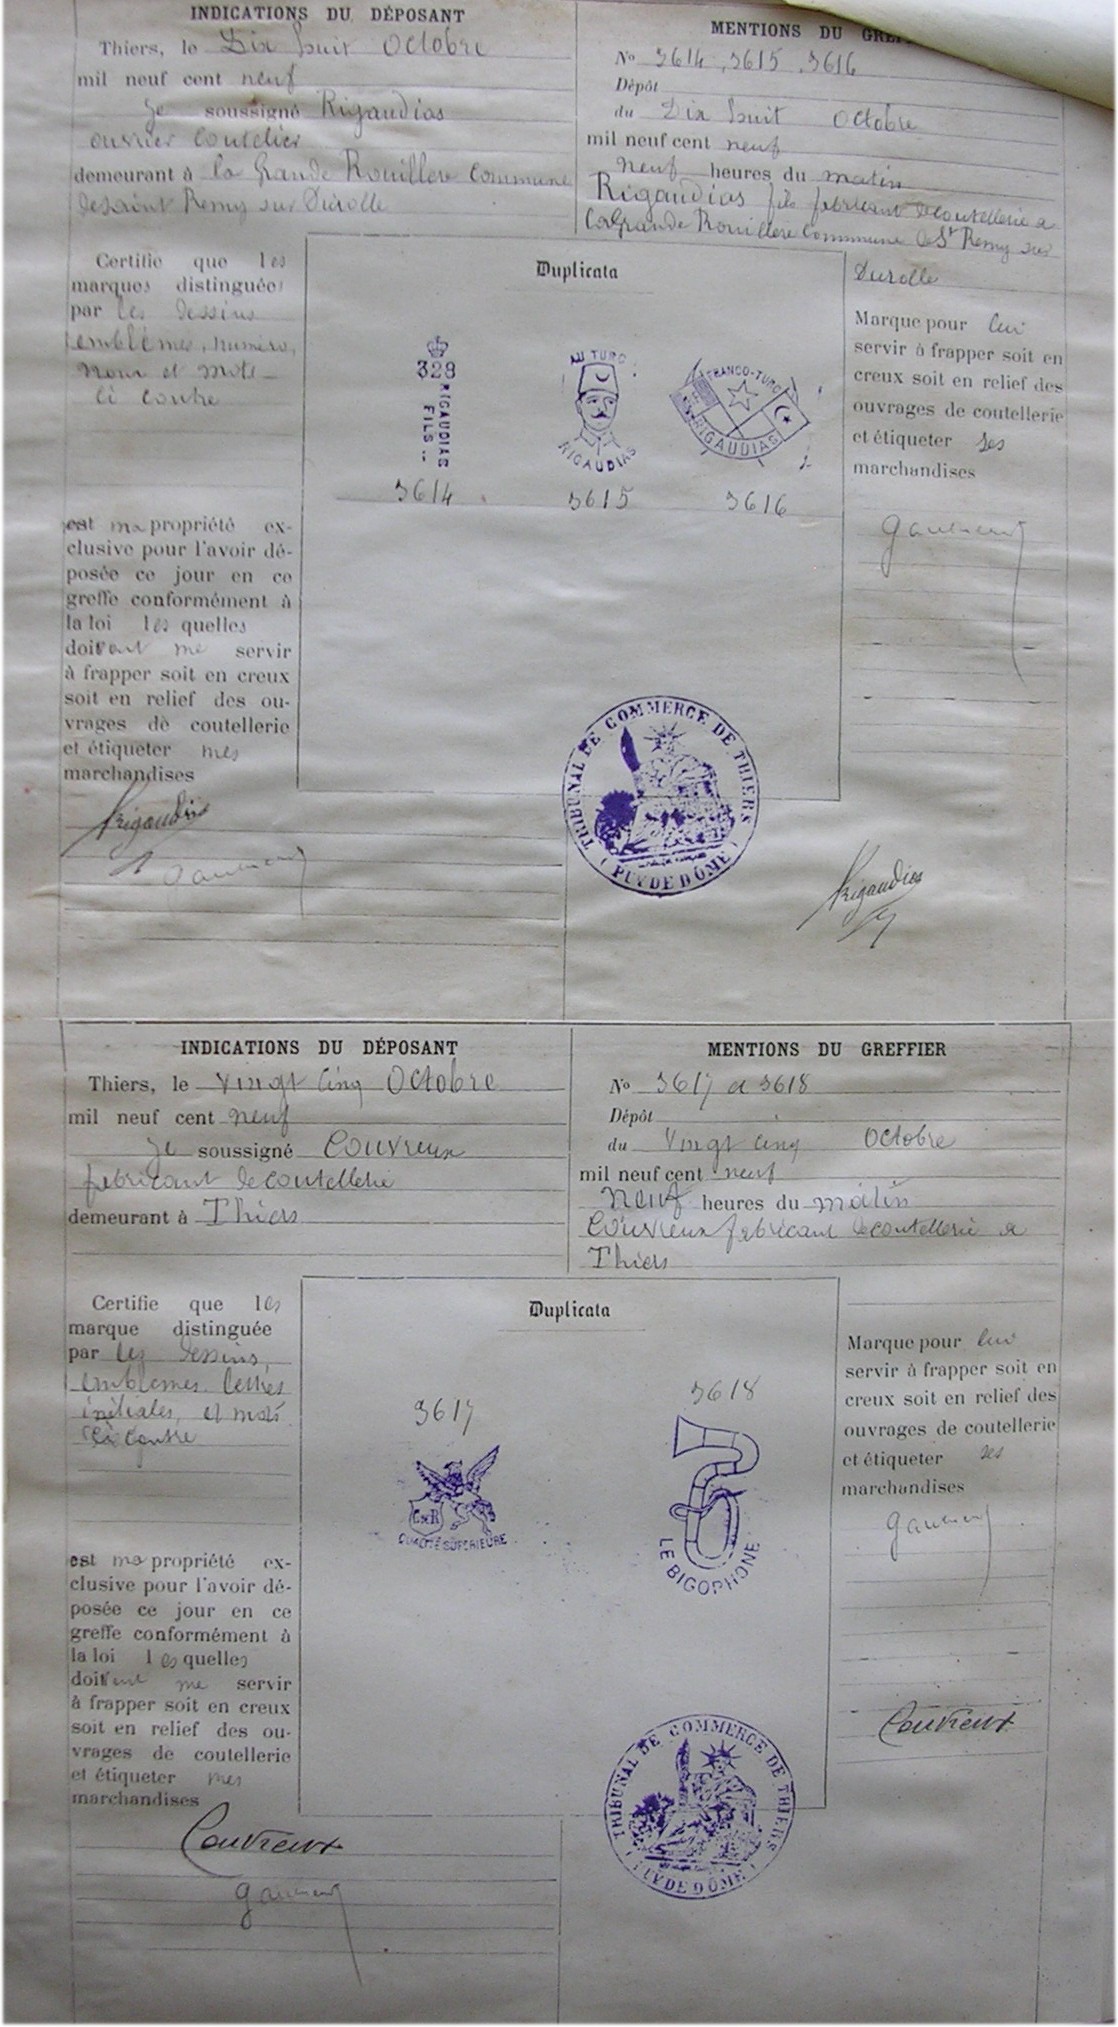 INDICATIONS DU DÉPOSANT
Thiers, le Dix huit Octobre
mil neuf cent neuf
Je soussigné Rigaudias
ouvrier Coutelier
demeurant à la Grande Rouillere Commune
de saint Remy sur Durolle
MENTIONS DU GREFF
No 3614, 3615, 3616
Dépôt
du Dix huit octobre
mil neuf cent neuf
neuf heures du matin
Rigaudias fils fabricant de coutellerie a
La grande Rouillere Commune de St Remy sur
Durolle
Certifie que les
marques distinguées
par les dessins
emblèmes, numéro,
nom et mots
ci contre
est ma propriété ex-
clusive pour l'avoir dé-
posée ce jour en ce
greffe conformément à
la loi lesquelles
doivent me servir
à frapper soit en creux
soit en relief des ou-
vrages de coutellerie
et étiqueter mes
marchandises
Rigaudias
Duplicata
328
RIGAUDIAS
FILS
3614
AU TURC
RIGAUDIAS
3615
FRANCO-TURC
RIGAUDIAS
3616
TRIBUNAL DE COMMERCE DE THIERS
(PUY DE DÔME)
Marque pour lui
servir à frapper soit en
creux soit en relief des
ouvrages de coutellerie
et étiqueter ses
marchandises
Rigaudias
INDICATIONS DU DÉPOSANT
Thiers, le Vingt cinq Octobre
mil neuf cent neuf
Je soussigné Couvreux
fabricant de coutellerie
demeurant à Thiers
MENTIONS DU GREFFIER
No 3617 a 3618
Dépôt
du Vingt cinq Octobre
mil neuf cent neuf
Neuf heures du matin
Couvreux fabricant de coutellerie a
Thiers
Certifie que les
marque distinguée
par les dessins,
emblemes lettres
initiales, et mots
ci contre
est ma propriété ex-
clusive pour l'avoir dé-
posée ce jour en ce
greffe conformément à
la loi lesquelles
doivent me servir
à frapper soit en creux
soit en relief des ou-
vrages de coutellerie
et étiqueter mes
marchandises
Couvreux
Duplicata
3617
C & R
QUALITÉ SUPÉRIEURE
3618
LE BIGOPHONE
TRIBUNAL DE COMMERCE DE THIERS
(PUY DE DÔME)
Marque pour lui
servir à frapper soit en
creux soit en relief des
ouvrages de coutellerie
et étiqueter ses
marchandises
Couvreux